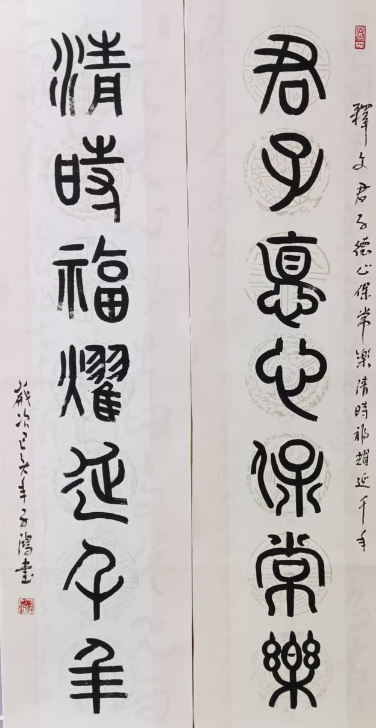 釋文君子德心保常樂清時福耀延千年
君子悳心保常樂
清時福耀延千年
歲次己亥年子鴻書